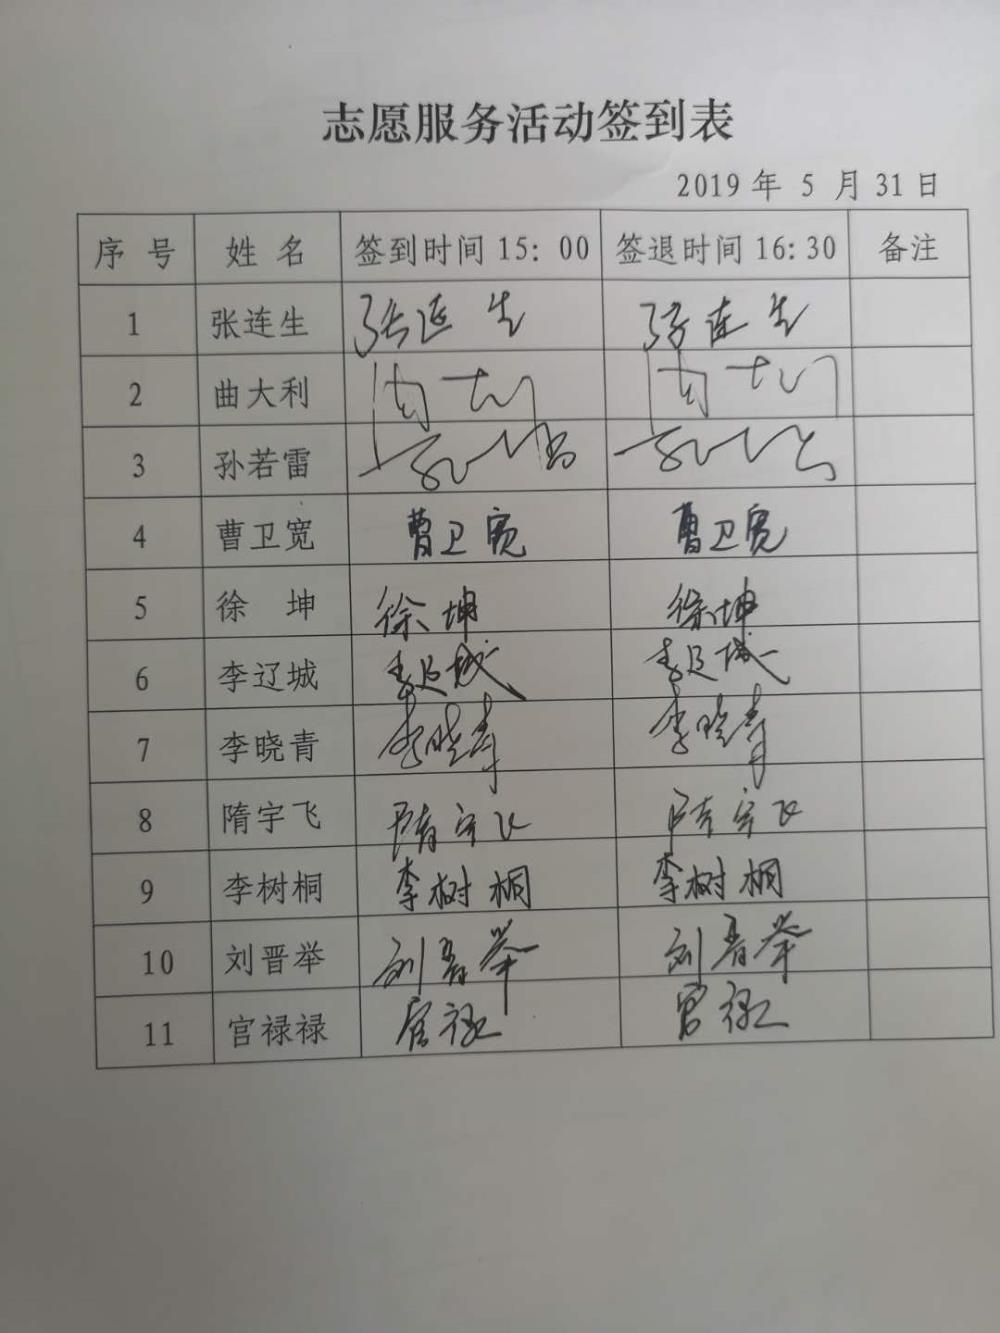 志愿服务活动签到表
2019 年 5 月 31 日
序 号 姓 名 签到时间 15：00 签退时间 16:30 备注
1 张连生 张连生 张连生
2 曲大利 曲大利 曲大利
3 孙若雷 孙若雷 孙若雷
4 曹卫宽 曹卫宽 曹卫宽
5 徐 坤 徐坤 徐坤
6 李辽城 李辽城 李辽城
7 李晓青 李晓青 李晓青
8 隋宇飞 隋宇飞 隋宇飞
9 李树桐 李树桐 李树桐
10 刘晋举 刘晋举 刘晋举
11 官禄禄 官禄 官禄